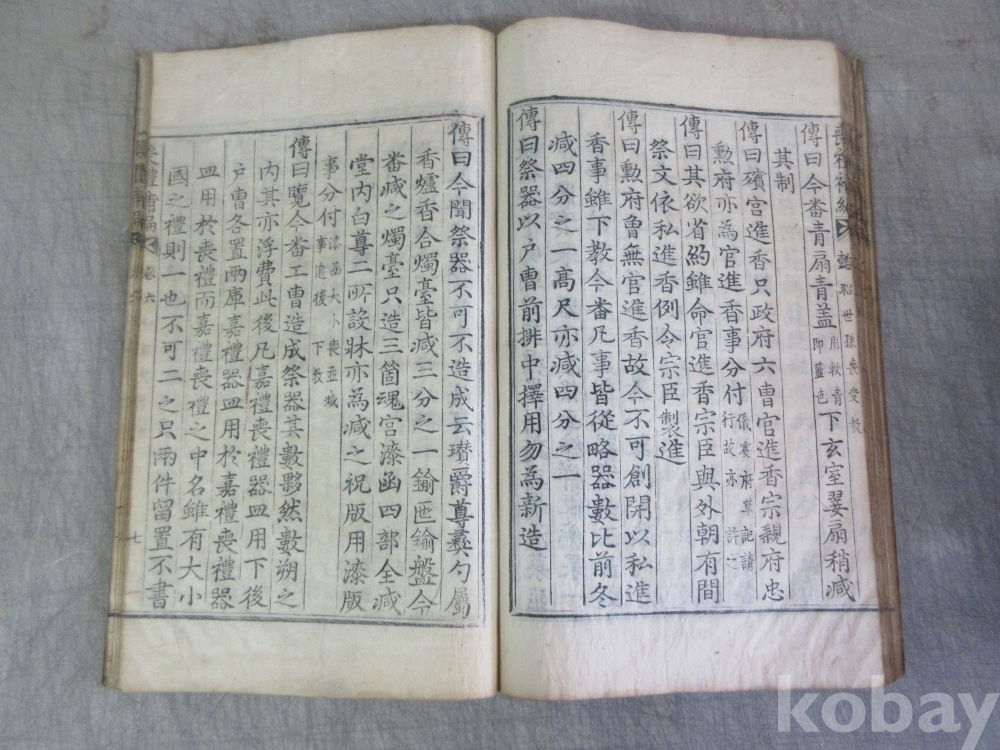 傳曰今番青扇青盖用軟青即藍色下玄室翣扇稍减
其制
傳曰殯宮進香只政府六曹官進香宗親府忠
勲府亦為官進香事分付儀賓府草記請行故亦許之
傳曰其欲省約雖命官進香宗臣與外朝有間
祭文依私進香例令宗臣製進
傳曰勲府曾無官進香故今不可創開以私進
香事雖下教今番凡事皆從略器數比前冬
减四分之一高尺亦减四分之一
傳曰祭器以户曹前排中擇用勿為新造
傳曰今聞祭器不可不造成云瓚爵尊彝勺屬
香爐香合燭臺皆减三分之一鍮匜鍮盤今
番减之燭臺只造三箇魂宮漆函四部全减
堂内白尊二所設牀亦為减之祝版用漆版
事分付漆函大小喪並减事追後下教
傳曰覽今番工曹造成祭器其數夥然數朔之
内其亦浮費此後凡嘉禮喪禮器皿用下後
户曹各置兩庫嘉禮器皿用於嘉禮喪禮器
皿用於喪禮而嘉禮喪禮之中名雖有大小
國之禮則一也不可二之只兩件留置不書
卷六
七
kobay